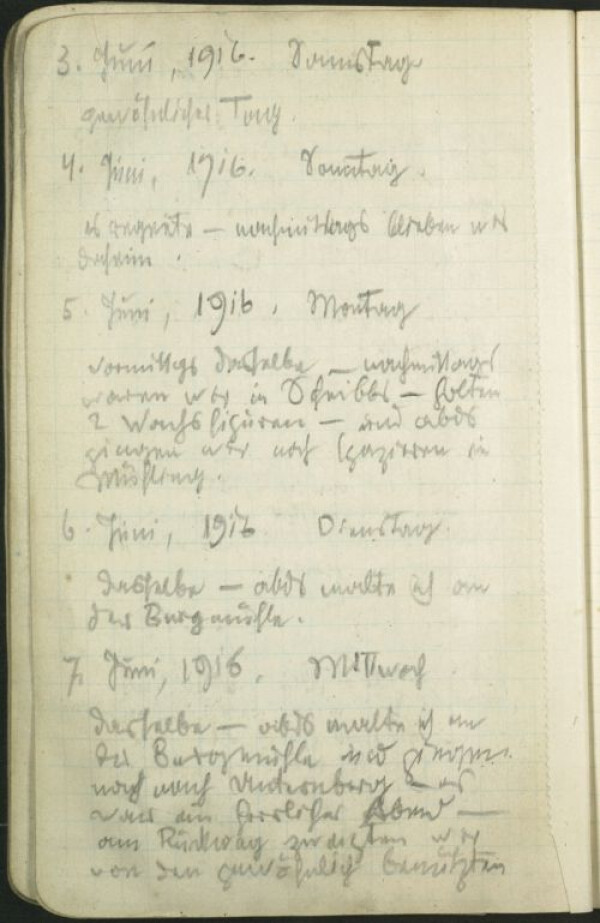 3. Juni, 1916. Samstag
gewöhnlicher Tag.
4. Juni, 1916. Sonntag.
es regnete – nachmittags blieben wir
daheim.
5. Juni, 1916. Montag
vormittgs dasselbe – nachmittags
waren wir in Scheibbs – holten
2 Wachsfiguren – und abds
gingen wir noch spazieren in
Mühling.
6. Juni, 1916 Dienstag.
dasselbe – abds malte ich an
der Bergmühle.
7. Juni, 1916. Mittwoch
dasselbe – abds malte ich an
der Bergmühle und gingen
noch nach – es
war ein herrlicher Abend –
am Rückweg zweigten wir
von den gewöhnlich benützten